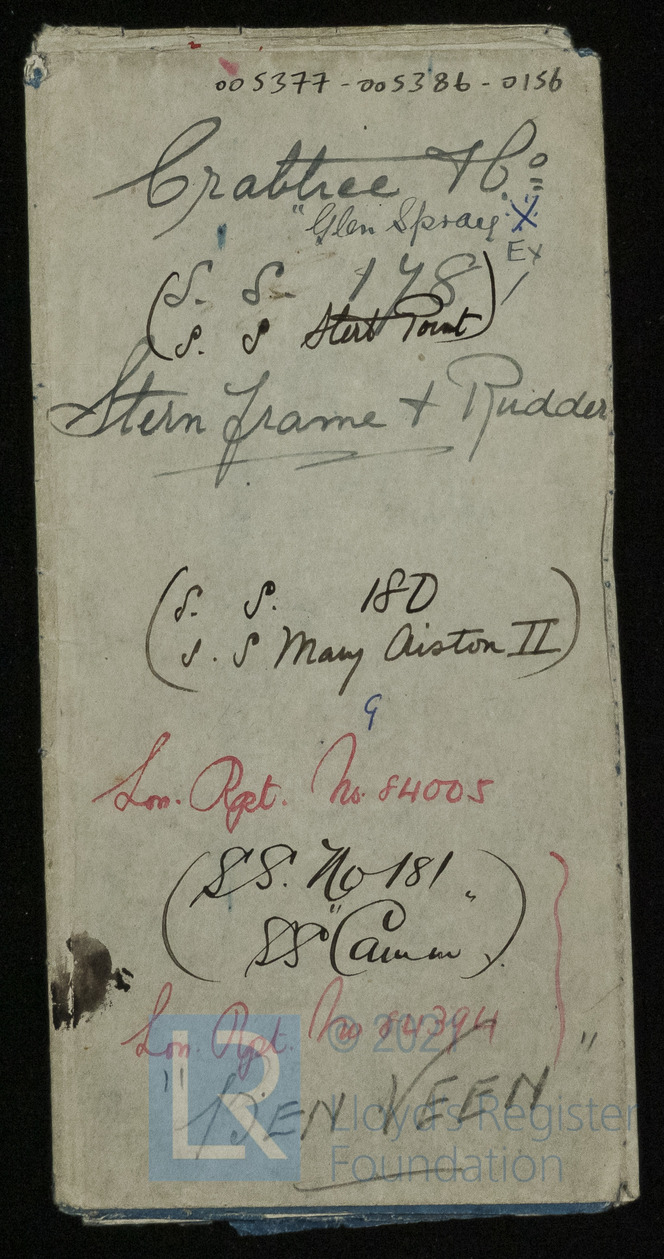 005377-005386-0156
Crabtree & Co
"Glen Spray X
Ex
(S. S. 178)
(S. S Stert Point)
Stern frame & Rudder
(S. S. 180
S. S Mary Aiston II)
9
Lon. Rpt. No. 84005
(SS. No 181
SS "Camm")
Lon. Rpt. No 84394
"BEN VEEN"
LR © 2021
Lloyd's Register
Foundation